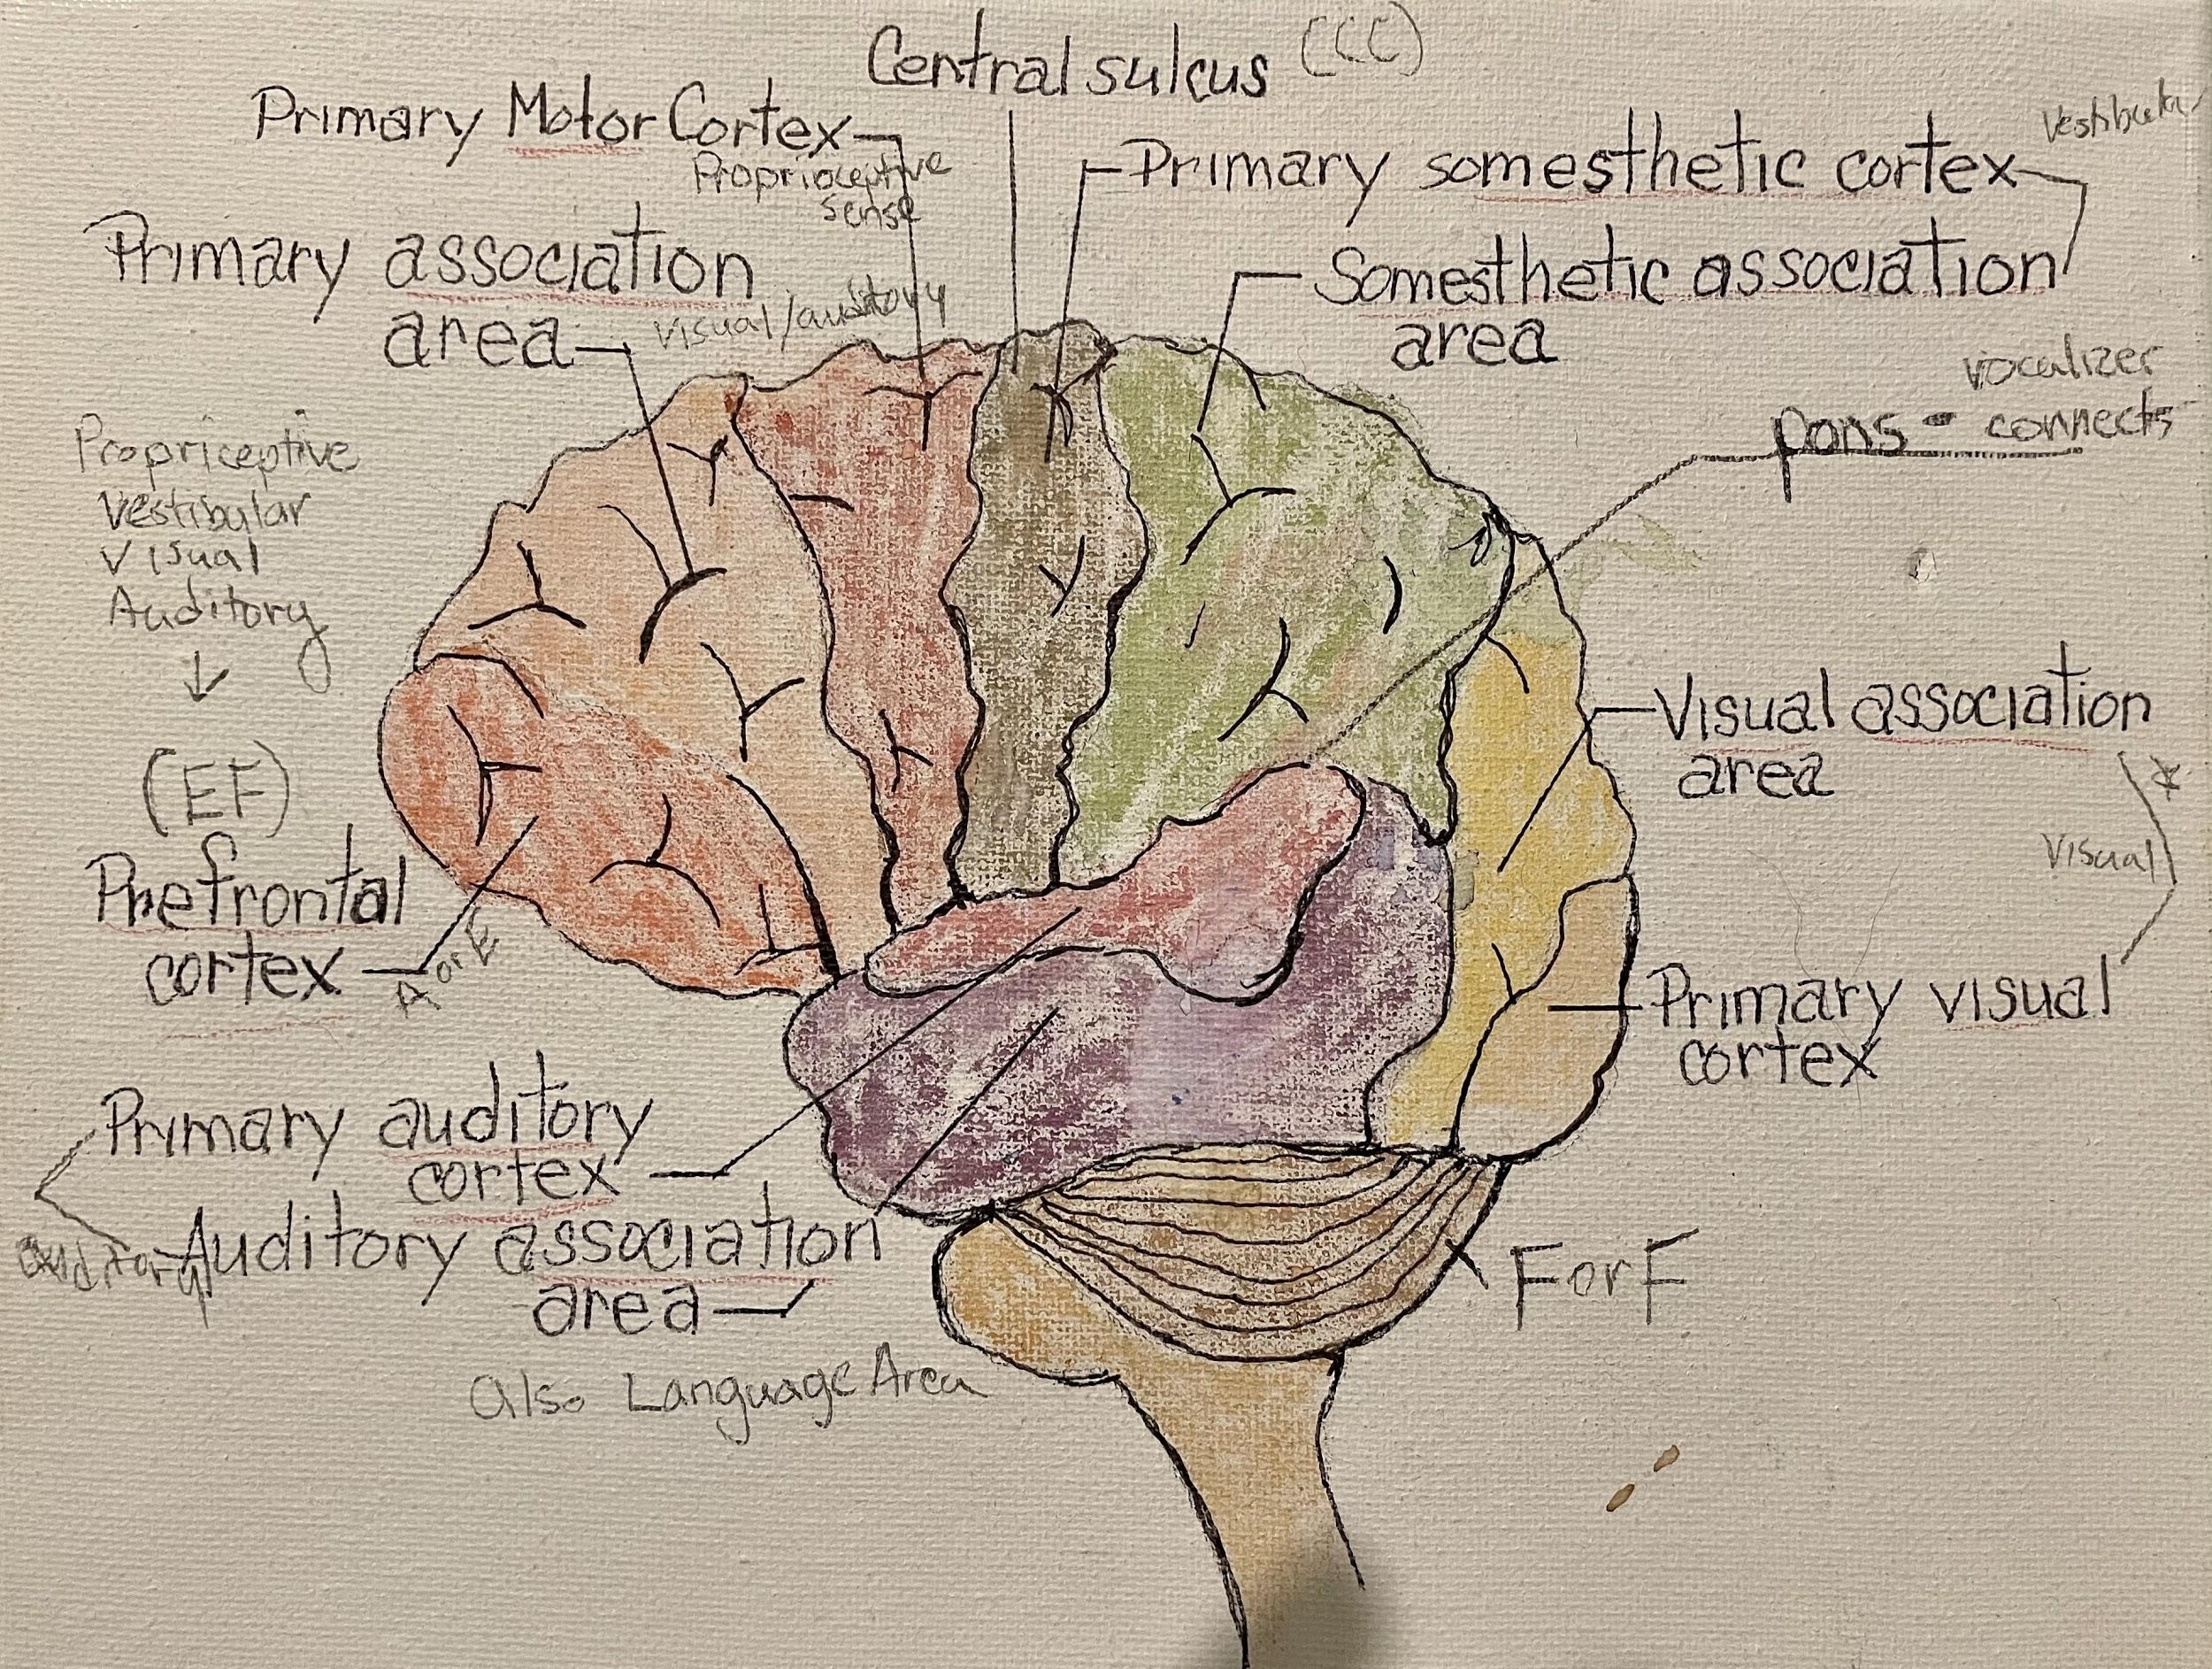 Central sulcus (CCC)
Primary Motor Cortex
Proprioceptive
sense
Primary somesthetic cortex
Primary association
area
visual/auditory
Somesthetic association
area
vocalizer
pons - connects
Propriceptive
Vestibular
Visual
Auditory
(EF)
Prefrontal
cortex
A or E
Visual association
area
Visual
Primary visual
cortex
Primary auditory
cortex
Auditory association
area
also Language Area
F or F